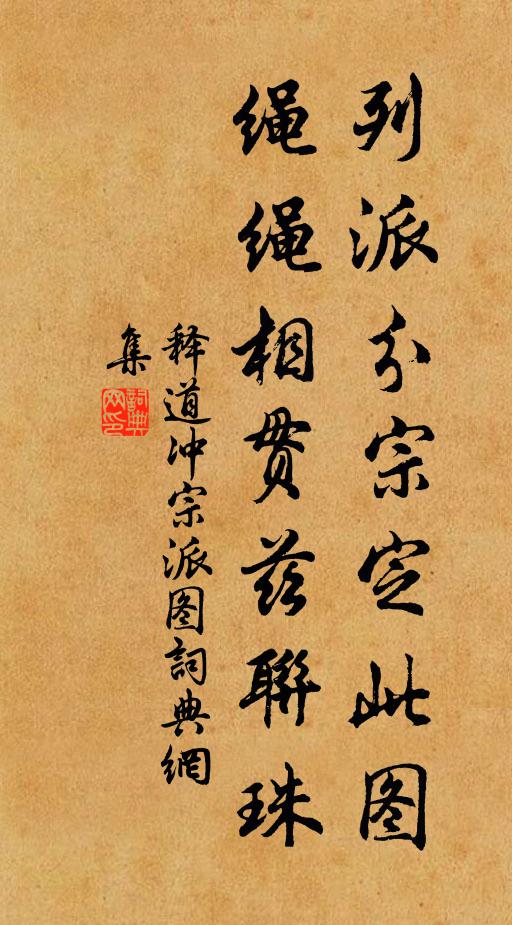 列派分宗定此图
绳绳相贯若联珠
释道冲宗派图詞典網
集
詞典
网印